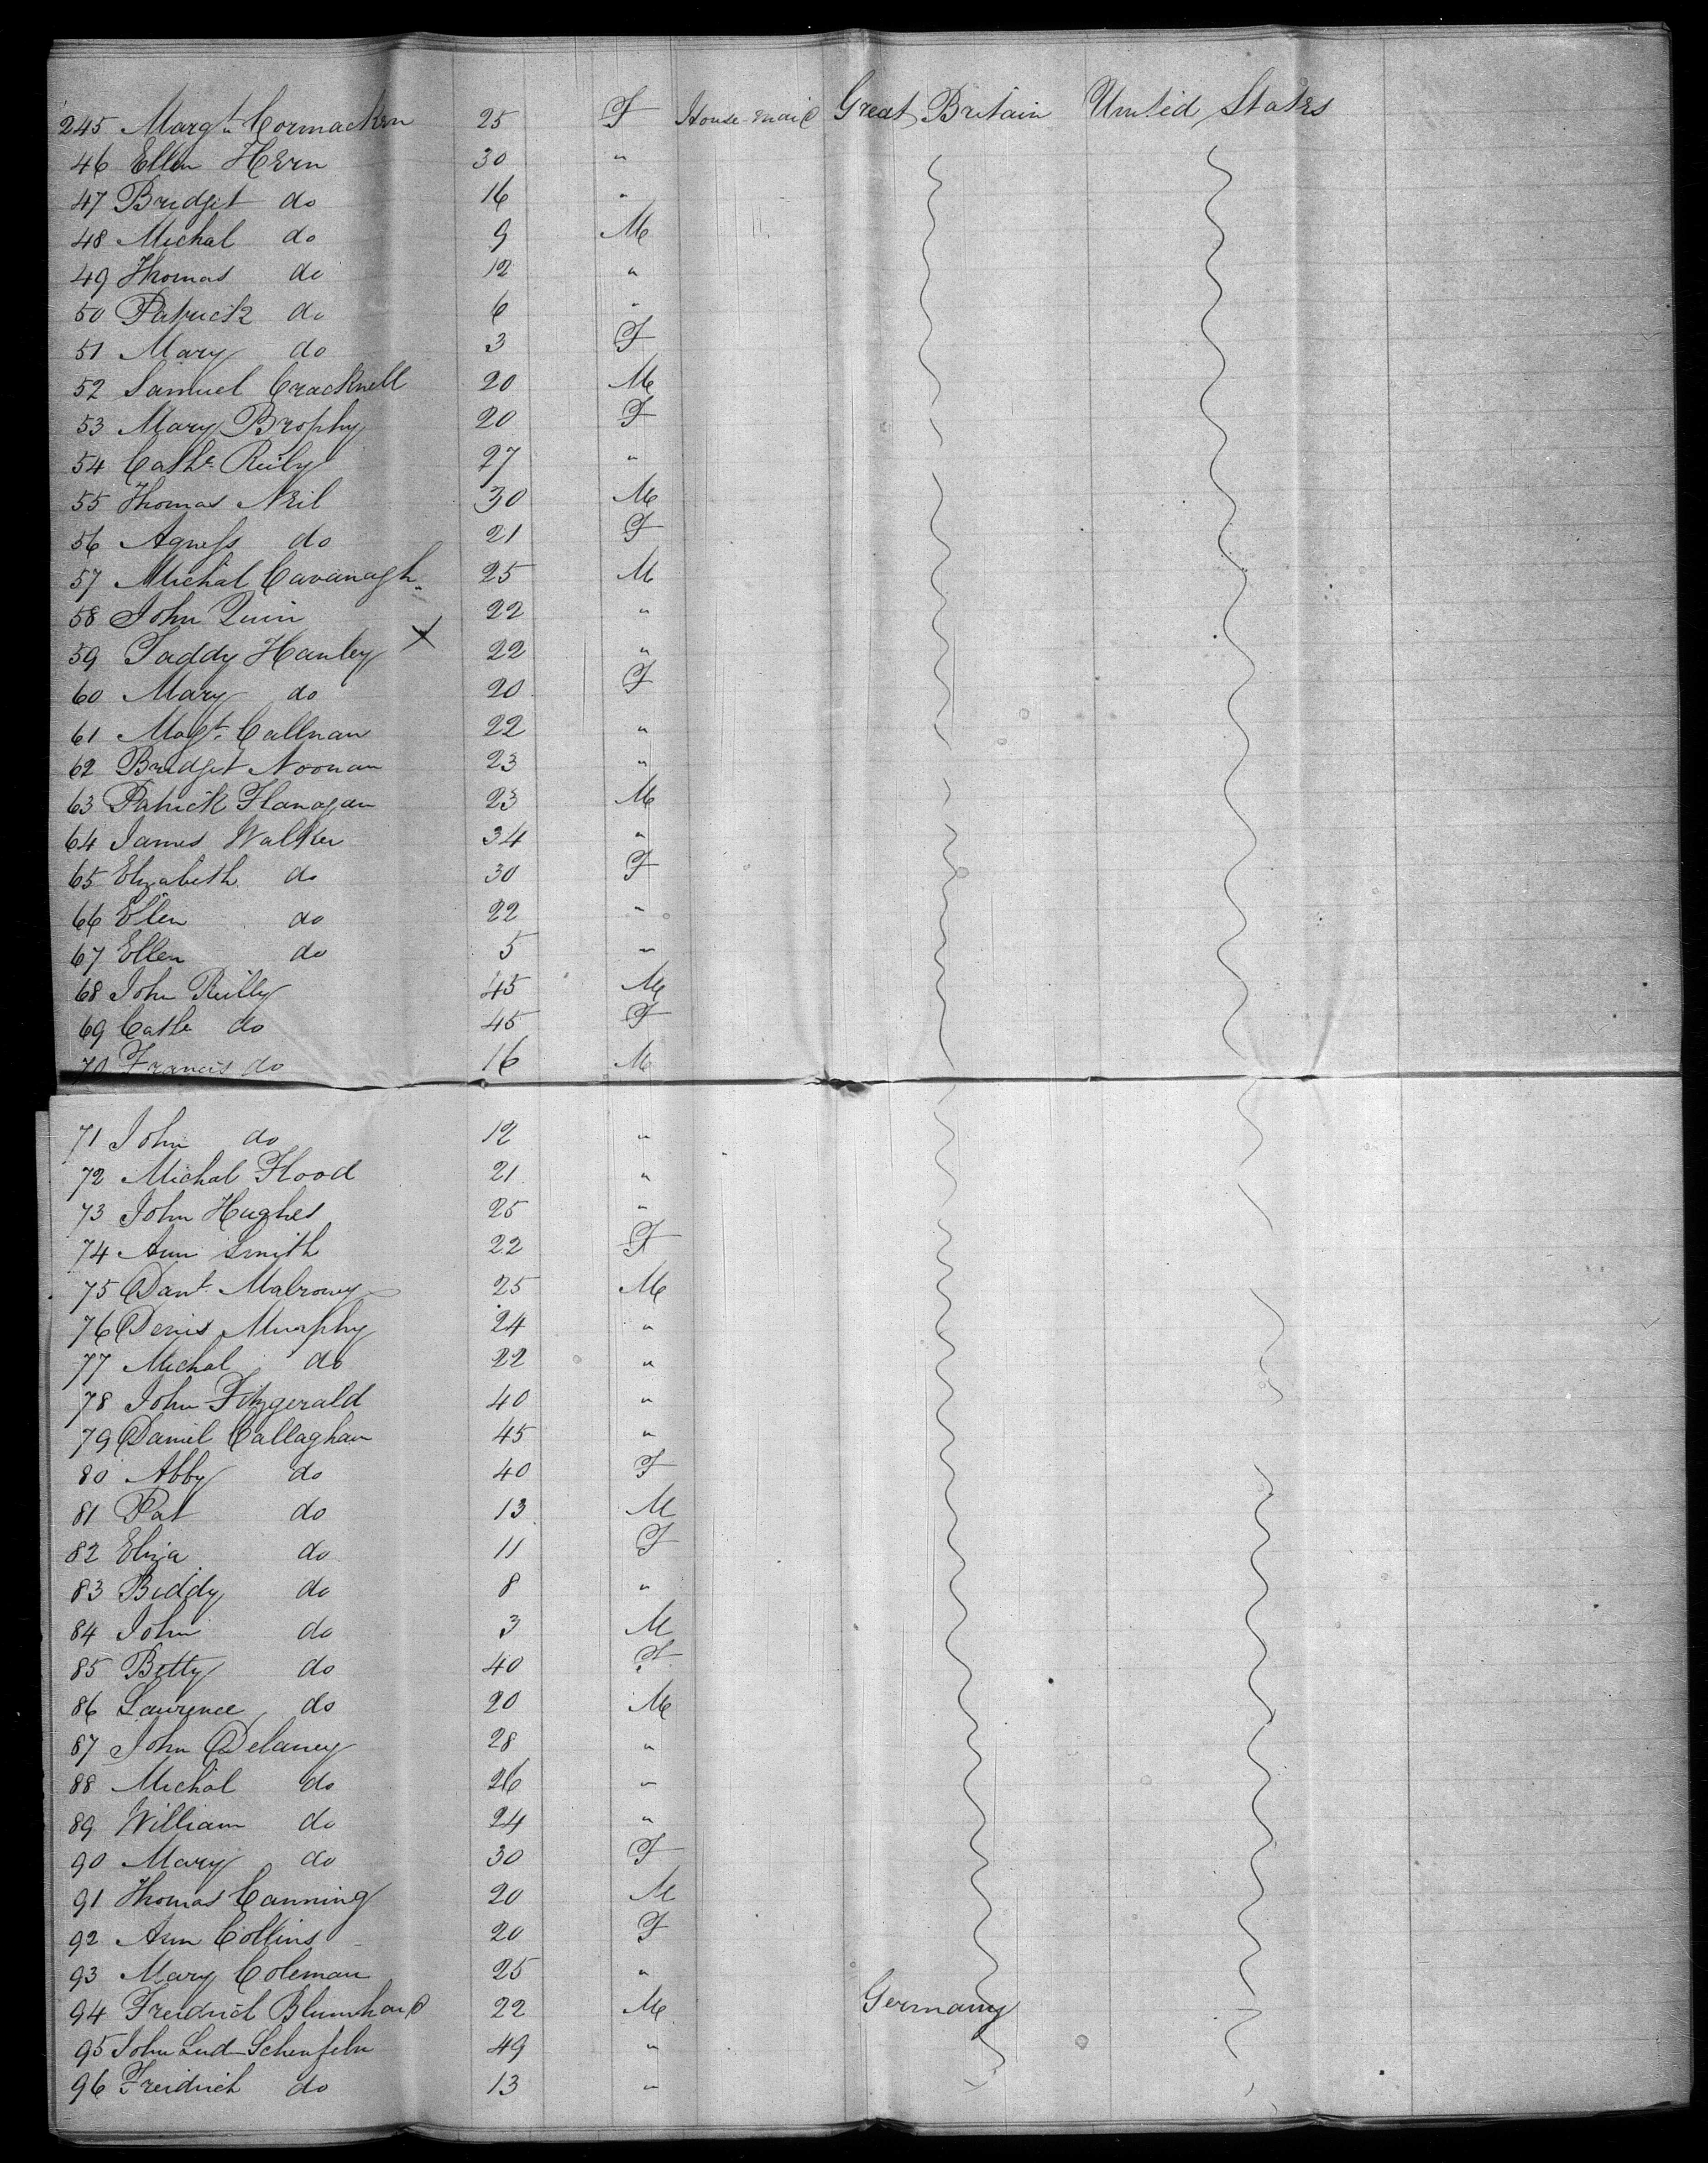 245 Margt Cormacken 25 F House-maid Great Britain United States
46 Ellen Hern 30 "
47 Bridget do 16 "
48 Michal do 9 M
49 Thomas do 12 "
50 Patrick do 6 "
51 Mary do 3 F
52 Samuel Cracknell 20 M
53 Mary Brophy 20 F
54 Cathe Reily 27 "
55 Thomas Neil 30 M
56 Agness do 21 F
57 Michal Cavanagh 25 M
58 John Quin 22 "
59 Paddy Hanley X 22 "
60 Mary do 20 F
61 Magt Callnan 22 "
62 Bridget Noonan 23 "
63 Patrick Flanagan 23 M
64 James Walker 34 "
65 Elizabeth do 30 F
66 Ellen do 22 "
67 Ellen do 5 "
68 John Reilly 45 M
69 Cathe do 45 F
70 Francis do 16 M
71 John do 12 "
72 Michal Flood 21 "
73 John Hughes 25 "
74 Ann Smith 22 F
75 Danl Malroney 25 M
76 Denis Murphy 24 "
77 Michal do 22 "
78 John Fitzgerald 40 "
79 Daniel Callaghan 45 "
80 Abby do 40 F
81 Pat do 13 M
82 Eliza do 11 F
83 Biddy do 8 "
84 John do 3 M
85 Betty do 40 F
86 Laurence do 20 M
87 John Delaney 28 "
88 Michal do 26 "
89 William do 24 "
90 Mary do 30 F
91 Thomas Canning 20 M
92 Ann Collins 20 F
93 Mary Coleman 25 "
94 Freidrich Blumhard 22 M Germany
95 John Lud 49 "
96 Freidrich do 13 "